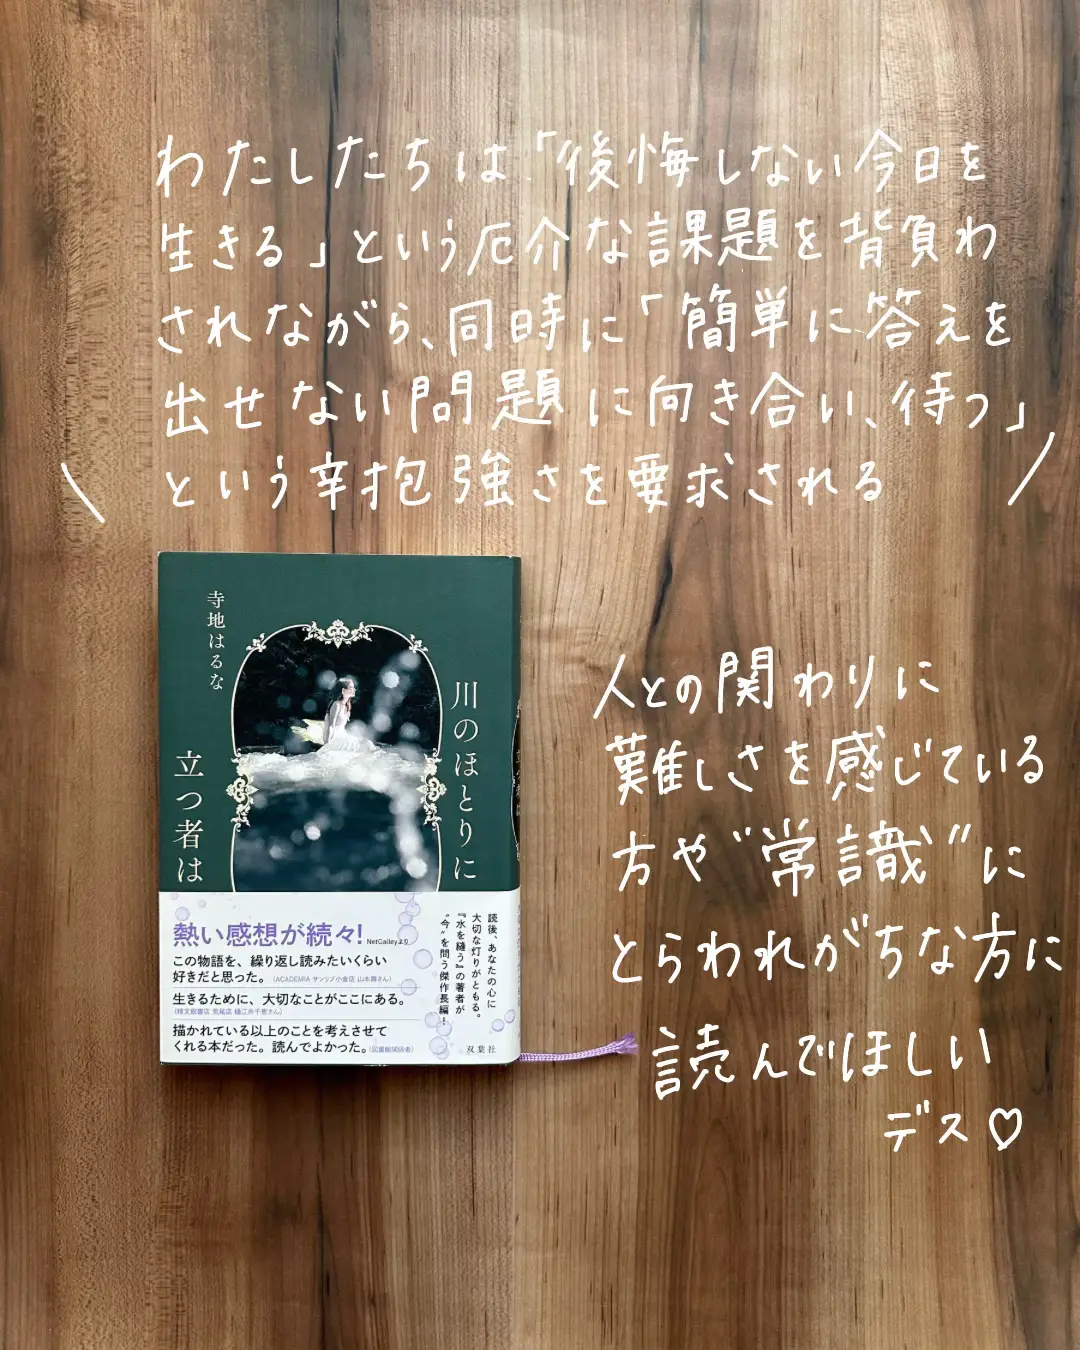 わたしたちは「後悔しない今日を
生きる」という厄介な課題を背負わ
されながら、同時に「簡単に答えを
出せない問題に向き合い、待つ」
という辛抱強さを要求される
寺地はるな
川のほとりに
立つ者は
人との関わりに
難しさを感じている
方や“常識”に
とらわれがちな方に
読んでほしい
デス♡
熱い感想が続々! NetGalleyより
この物語を、繰り返し読みたいくらい
好きだと思った。(ACADEMIA サンリブ小倉店 山本さん)
生きるために、大切なことがここにある。
(精文館書店 荒尾店 樋江井千恵さん)
描かれている以上のことを考えさせて
くれる本だった。読んでよかった。(図書館関係者)
読後、あなたの心に
大切な灯りがともる。
『水を縫う』の著者が
“今”を問う傑作長編!
双葉社